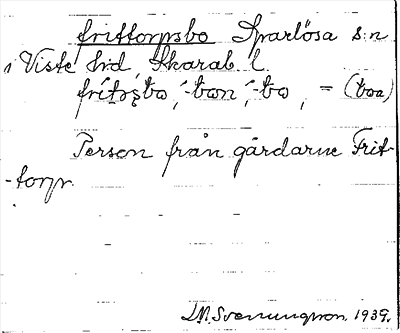 frittorpsbo Sparlösa s:n
Viste hd, Skarab. l.
-bon, -bo, = (boa)
Person från gårdarne Frit-
-torp.
D.A. Svenungsson. 1939.